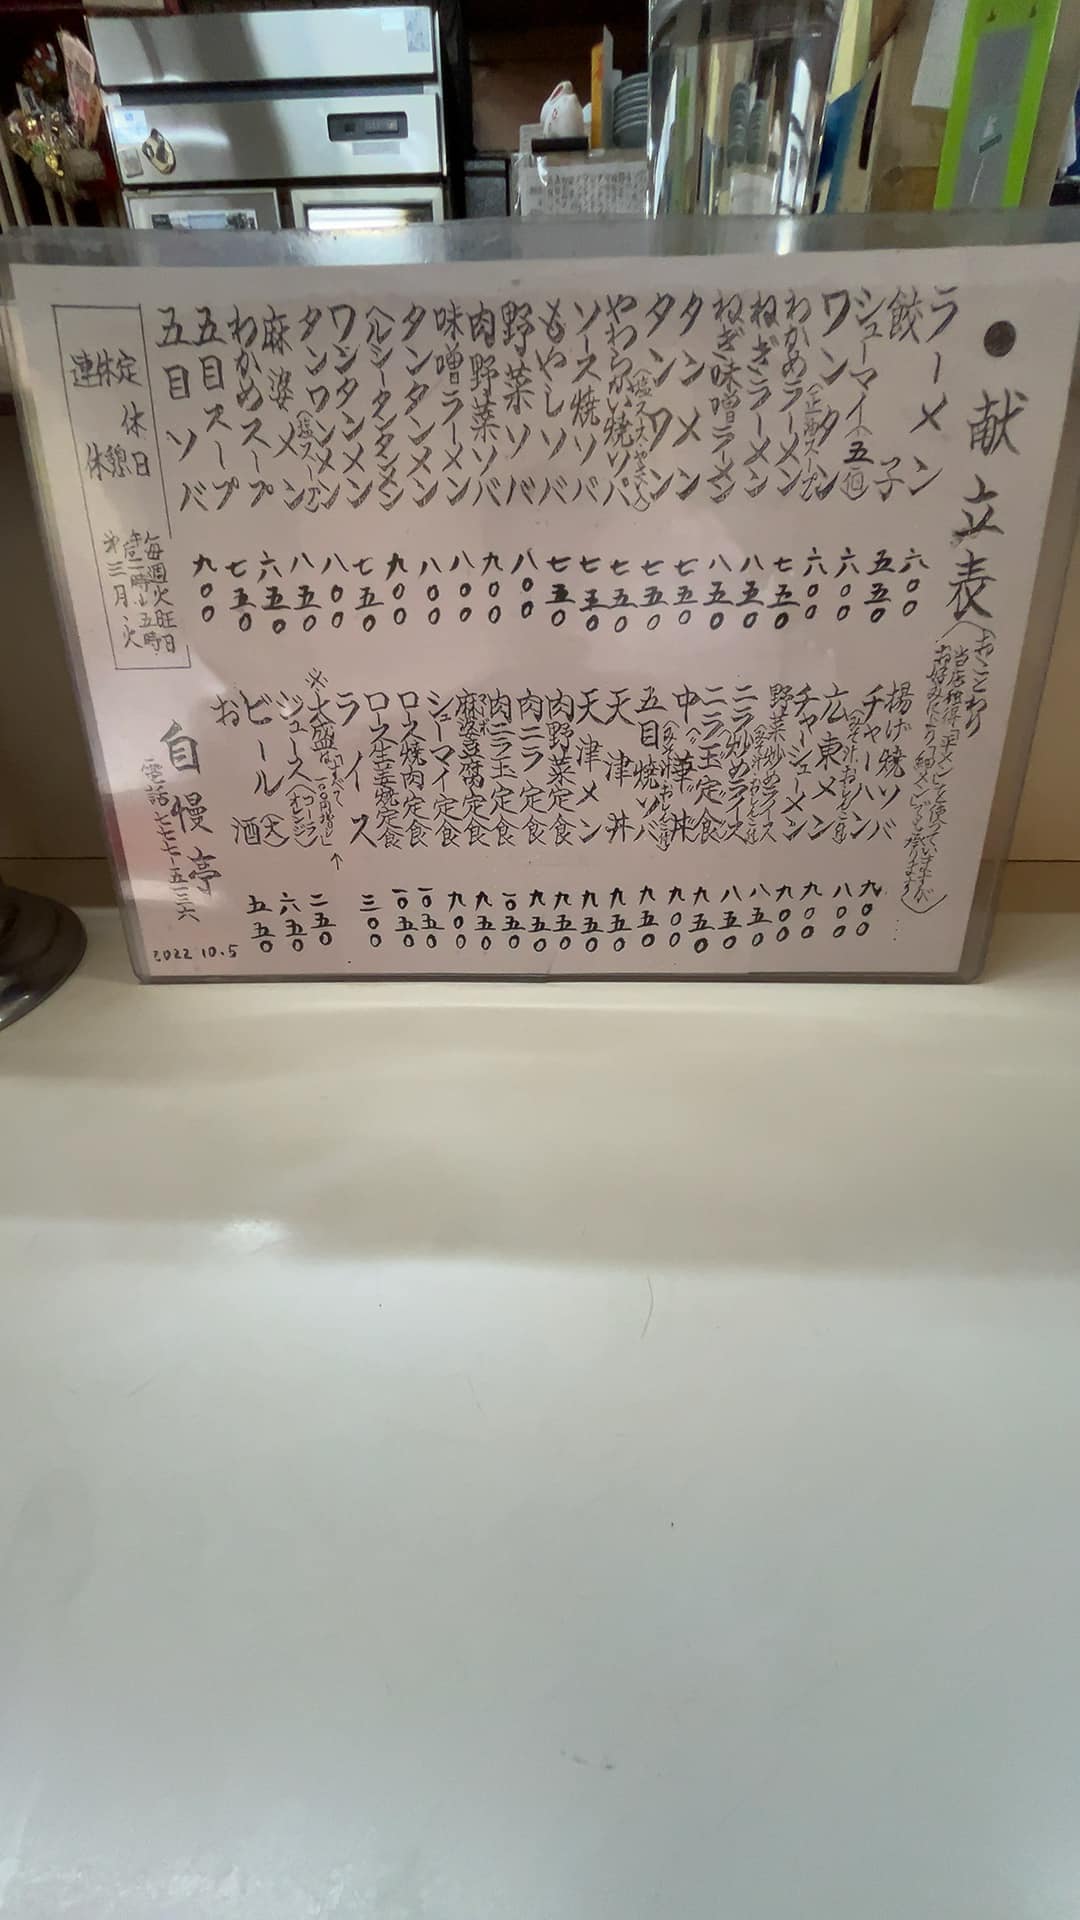 ●献立表
(おことわり
当店独得の平メンを使っていますが
お好みにより「細メン」でも承ります)
ラーメン 六〇〇
餃子 五五〇
シューマイ(五個) 六〇〇
ワンタン(正油スープ) 六〇〇
わかめラーメン 七五〇
ねぎラーメン 八五〇
ねぎ味噌ラーメン 八五〇
タンメン 七五〇
タンワン(塩スープ、やさい入) 七五〇
やわらかい焼ソバ 七五〇
ソース焼ソバ 七五〇
もやしソバ 七五〇
野菜ソバ 八〇〇
肉野菜ソバ 九〇〇
味噌ラーメン 八〇〇
タンタンメン 八〇〇
ヘルシータンタンメン 九〇〇
ワンタンメン 七五〇
タンワンメン(塩スープ) 八〇〇
麻婆メン 八五〇
わかめスープ 六五〇
五目スープ 七五〇
五目ソバ 九〇〇
定休日 毎週火旺日
休憩 午后三時〜五時
連休 第三月、火
揚げ焼ソバ 九〇〇
チャーハン(みそ汁・おしんこ付) 八〇〇
広東メン 九〇〇
チャーシューメン 九〇〇
野菜炒めライス(みそ汁・おしんこ付) 八五〇
ニラ炒めライス 八五〇
ニラ玉定食 九五〇
中華丼(みそ汁・おしんこ付) 九〇〇
五目焼ソバ 九五〇
天津丼 九五〇
天津メン 九五〇
肉野菜定食 九五〇
肉ニラ定食 九五〇
肉ニラ玉定食 一〇五〇
麻婆豆腐定食 九五〇
シューマイ定食 九〇〇
ロース焼肉定食 一〇五〇
ロース生姜焼定食 一〇五〇
ライス 三〇〇
※大盛はすべて一〇〇円増し↑
ジュース(コーラ オレンジ) 二五〇
ビール(大) 六五〇
お酒 五五〇
自慢亭
電話 七七七-五一三六
2022 10.5